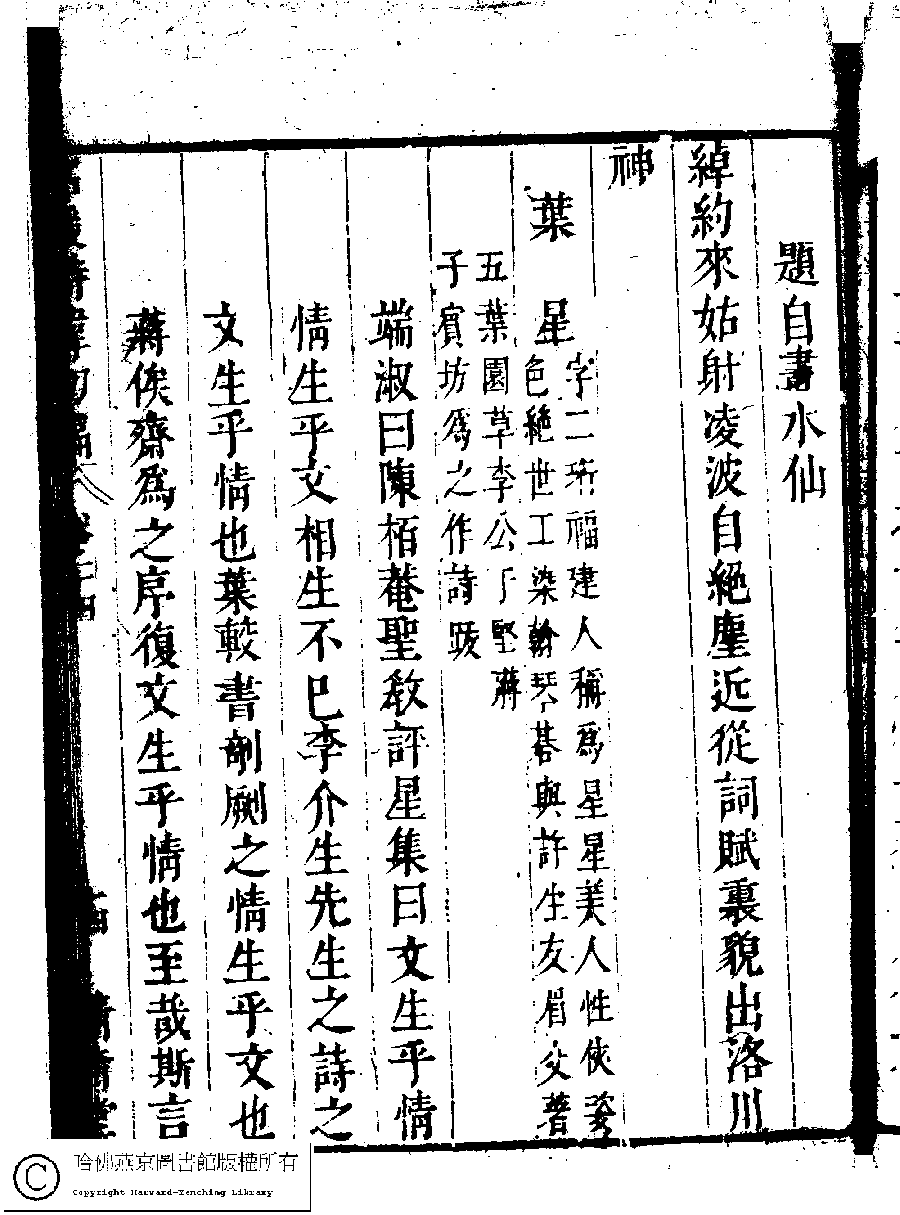 題自畫水仙
綽約來姑射凌波自絕塵近從詞賦裏貌出洛川
神
葉星
字二珩福建人稱為星星美人性俠姿
色絕世工染翰琴棊與許生友眉交著
五葉園草李公子堅蔣
子賓坊為之作詩跋
端淑曰陳栢菴聖教評星集曰文生乎情
情生乎文相生不已李介生先生之詩之
文生乎情也葉較書剞劂之情生乎文也
蔣俟齋為之序復文生乎情也至哉斯言
名媛詩緯初編
卷二十四
清音堂
哈佛燕京圖書館版權所有
Copyright Harvard-Yenching Library